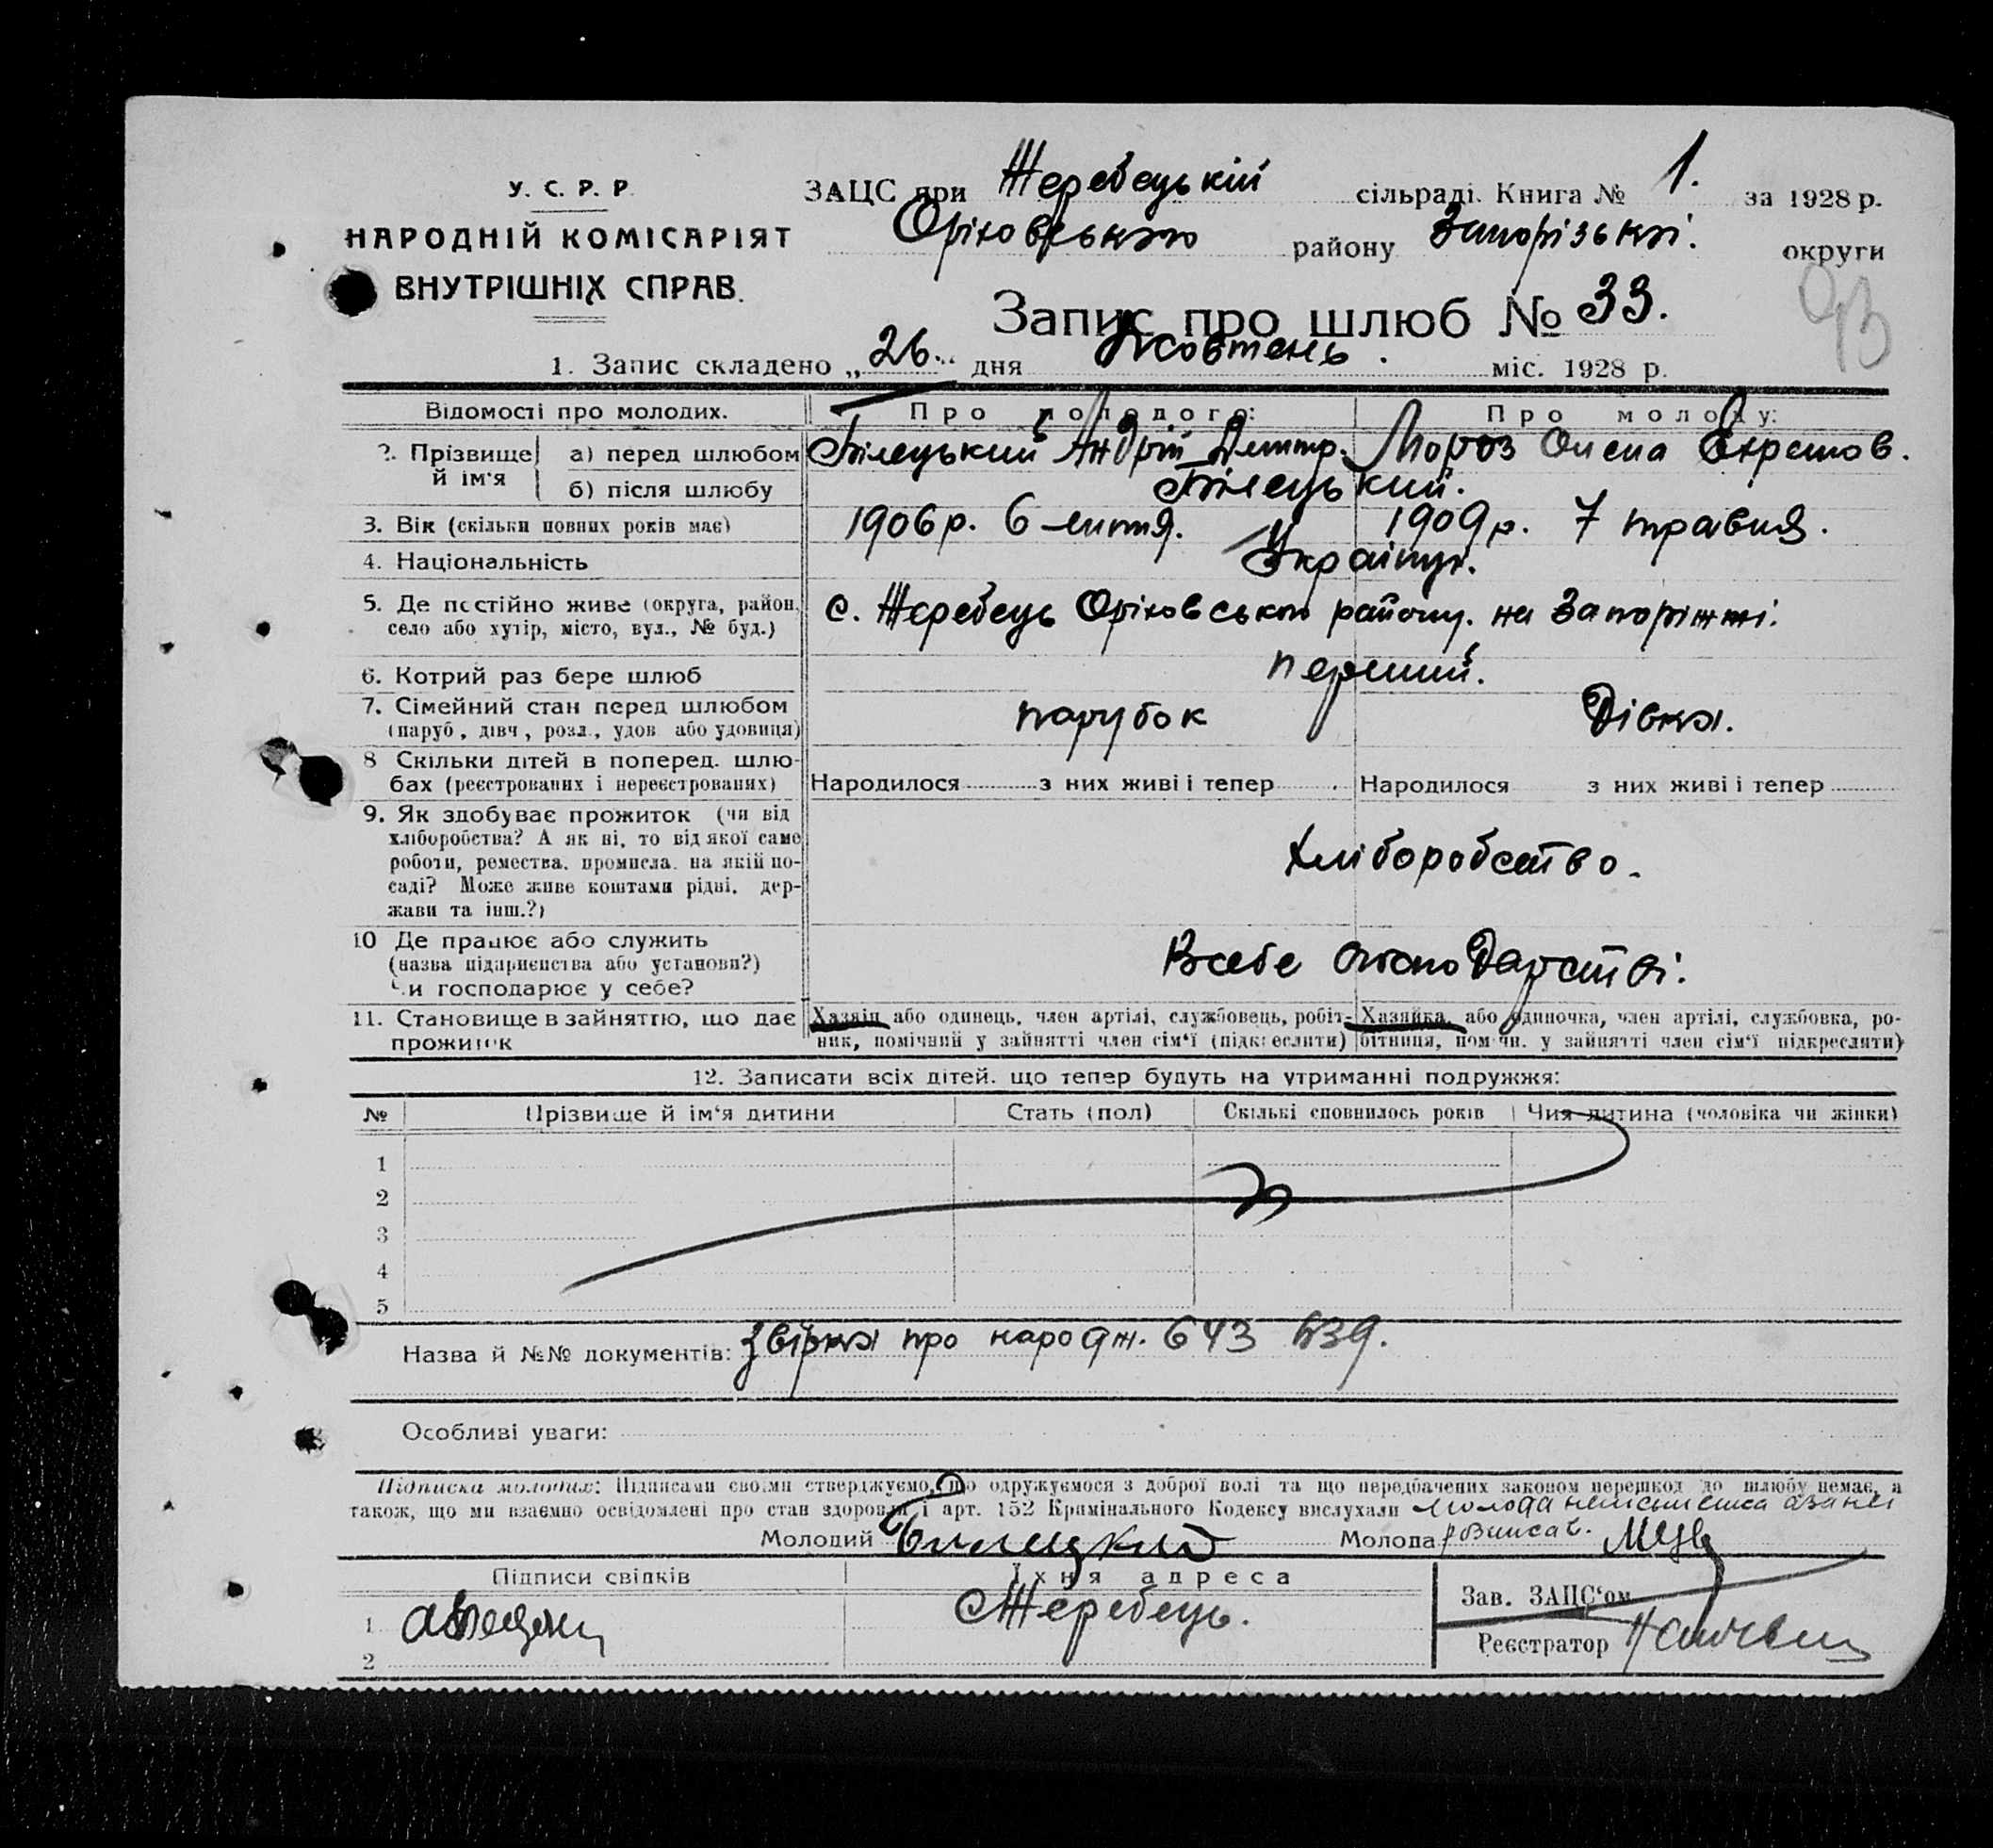 У. С. Р. Р.
НАРОДНІЙ КОМІСАРІЯТ
ВНУТРІШНІХ СПРАВ.
ЗАЦС при Жеребецькій сільраді. Книга № 1. за 1928 р.
Оріховського району Запорізької. округи
93
Запис про шлюб № 33.
1. Запис складено „26.“ дня Жовтень. міс. 1928 р.
Відомості про молодих. Про молодого: Про молоду:
2. Прізвище й ім‘я а) перед шлюбом Білецький Андрій Дмитр. Мороз Олена Охремов.
б) після шлюбу Білецький.
3. Вік (скільки повних років має) 1906 р. 6 липня. 1909 р. 7 травня.
4. Національність Українці.
5. Де постійно живе (округа, район, с. Жеребець Оріховського району. на Запоріжжі.
село або хутір, місто, вул., № буд.)
6. Котрий раз бере шлюб перший.
7. Сімейний стан перед шлюбом парубок Дівка.
(паруб, дівч, розл., удов. або удовиця)
8 Скільки дітей в поперед. шлю-
бах (реєстрованих і нереєстрованих) Народилося з них живі і тепер Народилося з них живі і тепер
9. Як здобуває прожиток (чи від
хліборобства? А як ні, то від якої саме
роботи, ремества, промисла, на якій по-
саді? Може живе коштами рідні, дер-
жави та інш.?) Хліборобство.
10 Де працює або служить
(назва підприємства або установи?)
Чи господарює у себе? Всебе Господарстві.
11. Становище в зайняттю, що дає Хазяїн або одинець, член артілі, службовець, робіт- Хазяйка або одиночка, член артілі, службовка, ро-
прожиток ник, помічний у зайнятті член сім‘ї (підкреслити) бітниця, помічн. у зайнятті член сім‘ї підкреслити)
12. Записати всіх дітей, що тепер будуть на утриманні подружжя:
№ Прізвище й ім‘я дитини Стать (пол) Скількі сповнилось років Чия дитина (чоловіка чи жінки)
1
2
3
4
5
Назва й №№ документів: Звірка про народж. 643 639.
Особливі уваги:
Підписка молодих: Підписами своїми стверджуємо, що одружуємося з доброї волі та що передбачених законом перешкод до шлюбу немає, а
також, що ми взаємно освідомлені про стан здоровля і арт. 152 Крамінального Кодексу вислухали молода неписьменна за неї
Молодий Билецкий Молода розписав.
Підписи свідків Їхня адреса Зав. ЗАЦС‘ом
1 с Жеребець. Реєстратор
2